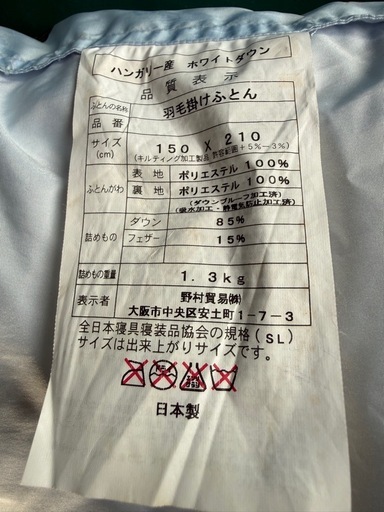 ハンガリー産 ホワイトダウン
品質表示
ふとんの名称 羽毛掛けふとん
品番
サイズ(cm) 150 X 210
(キルティング加工製品 許容範囲+5%-3%)
ふとんがわ 表地 ポリエステル100%
裏地 ポリエステル100%
(ダウンプルーフ加工済)
(吸水加工・静電気防止加工済)
詰めもの ダウン 85%
フェザー 15%
詰めもの重量 1.3kg
表示者 野村貿易㈱
大阪市中央区安土町1-7-3
全日本寝具寝装品協会の規格(SL)
サイズは出来上がりサイズです。
日本製